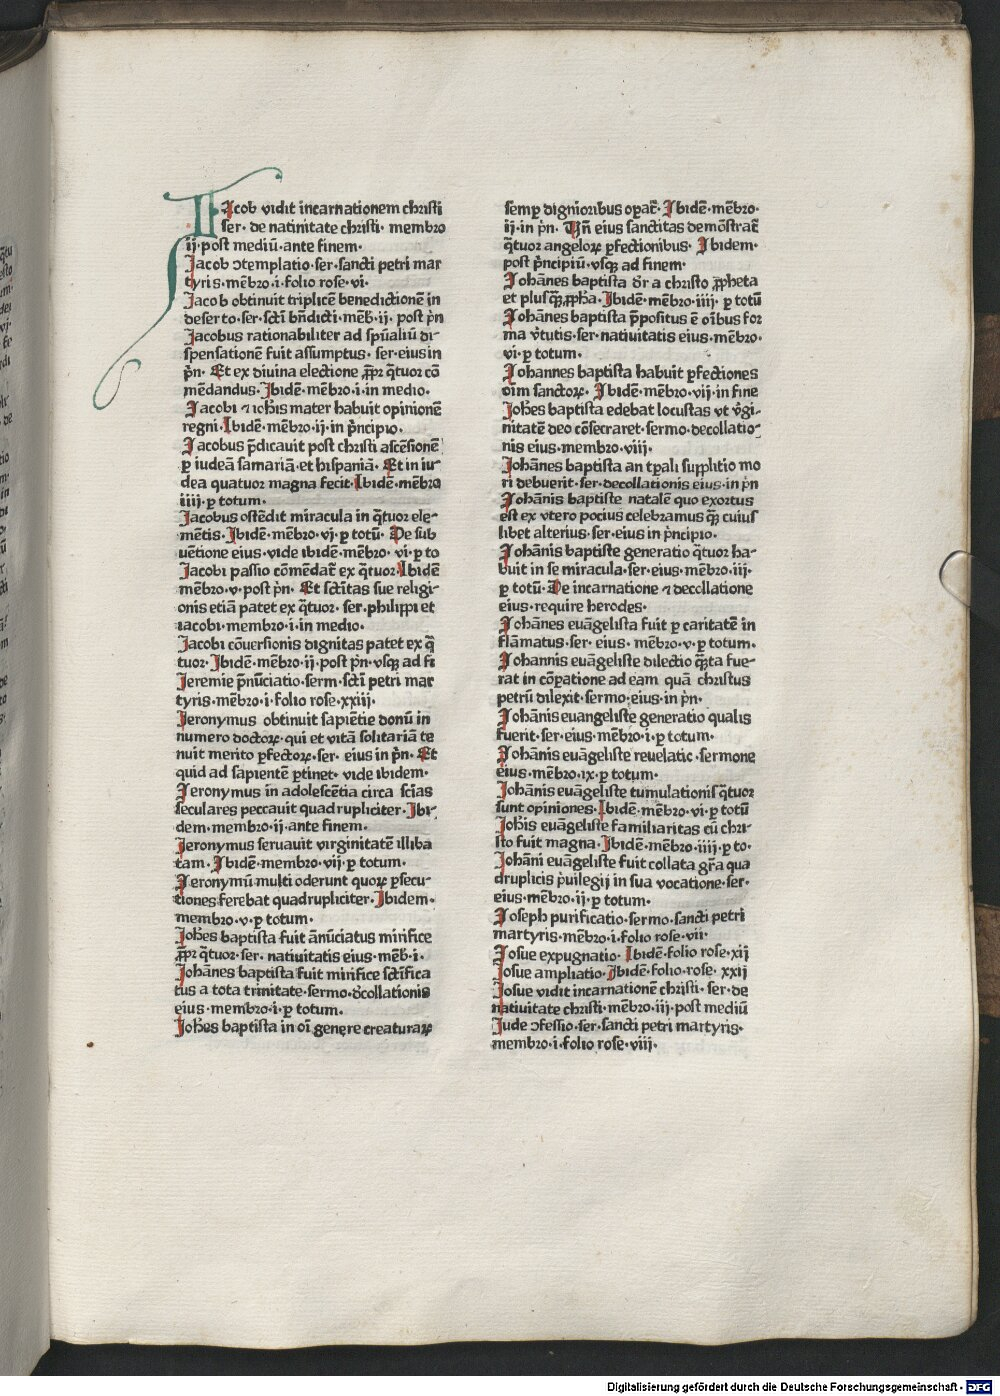 Iacob vidit incarnationem christi
ser· de natiuitate christi· membro
ij·post mediū·ante finem·
Jacob ↄtemplatio·ser·sancti petri mar
tyris·mēbro·i·folio rose·vi·
Jacob obtinuit triplicē benedictionē in
deserto·ser·sctī bn̄dicti·mēb·ij· post pn̄
Jacobus rationabiliter ad spūaliū di-
spensationē fuit assumptus· ser·eius in
pn̄· Et ex diuina electione ꝓpt q̄tuor cō
mēdandus·Ibidē·mēbro·i·in medio·
Jacobi ⁊ iohīs mater habuit opinionē
regni·Ibidē·mēbro·ij·in pͥncipio·
Jacobus p̄dicauit post christi ascēsionē
ꝑ iudeā samariā·et hispaniā· Et in iu-
dea quatuor magna fecit·Ibidē·mēbro
iiij·ꝑ totum·
Jacobus ostēdit miracula in q̄tuor ele-
mētis·Ibidē·mēbro·vj·ꝑ totū· De sub
uētione eius·vide ibidē·mēbro· vi·ꝑ to
Jacobi passio cōmēdat̄ ex q̄tuor·Ibidē
mēbro·v·post pn̄· Et sctītas sue religi-
onis etiā patet ex q̄tuor· ser·philippi et
iacobi·membro·i·in medio·
Jacobi cōuersionis dignitas patet ex q̄
tuor·Ibidē·mēbro·ij·post pn̄·vsqꝫ ad fi
Jeremie p̄nūciatio·serm·sctī petri mar
tyris·mēbro·i·folio rose·xxiij·
Jeronymus obtinuit sapiētie donū in
numero doctoꝝ·qui et vitā solitariā te
nuit merito ꝑfectoꝝ·ser· eius in pn̄· Et
quid ad sapientē ꝑtinet· vide ibidem·
Jeronymus in adolescētia circa sciās
seculares peccauit quadrupliciter·Ibi-
dem·membro·ij·ante finem·
Jeronymus seruauit virginitatē illiba
tam·Ibidē·membro·vij·ꝑ totum·
Jeronymū multi oderunt quoꝝ ꝑsecu-
tiones ferebat quadrupliciter·Ibidem·
membro·v·ꝑ totum·
Johēs baptista fuit ānūciatus mirifice
ꝓpt q̄tuor·ser· natiuitatis eius·mēb·i·
Johānes baptista fuit mirifice sctīfica
tus a tota trinitate·sermo·dͤcollationis
eius·membro·i·ꝑ totum·
Johēs baptista in oī genere creaturaꝝ
semꝑ dignioribus oꝑat̄· Ibidē·mēbro·
ij·in pn̄· Vn̄ eius sanctitas demōstrat̄
q̄tuor angeloꝝ ꝑfectionibus· Ibidem·
post pͥncipiū·vsqꝫ ad finem·
Johānes baptista dr̄ a christo ꝓpheta
et plusqꝫ ꝓphā·Ibidē·mēbro·iiij· ꝑ totū
Johānes baptista p̄positus ē oībus for
ma vͥtutis·ser·natiuitatis eius·mēbro·
vi·ꝑ totum·
Johannes baptista habuit ꝑfectiones
oīm sanctoꝝ· Ibidē·mēbro·vij·in fine
Johēs baptista edebat locustas vt vͥgi-
nitatē deo cōsecraret·sermo·decollatio-
nis eius·membro·viij·
Johānes baptista an tꝑali supplitio mo
ri debuerit·ser·decollationis eius·in pn̄
Johānis baptiste natalē quo exortus
est ex vtero pocius celebramus qꝫ cuius
libet alterius·ser·eius in pͥncipio·
Johānis baptiste generatio q̄tuor ha-
buit in se miracula·ser·eius·mēbro·iij·
ꝑ totū·De incarnatione ⁊ decollatione
eius·require herodes·
Johānes euāgelista fuit ꝑ caritatē in
flāmatus·ser· eius· mēbro·v·ꝑ totum·
Johannis euāgeliste dilectio q̄ta fue-
rat in cōꝑatione ad eam quā christus
petrū dilexit·sermo·eius·in pn̄·
Johānis euangeliste generatio qualis
fuerit·ser·eius·mēbro·i·ꝑ totum·
Johānis euāgeliste reuelatic·sermone
eius·mēbro·ix·ꝑ totum·
Johānis euāgeliste tumulationis q̄tuor
sunt opiniones·Ibidē·mēbro·vi·ꝑ totū
Johīs euāgeliste familiaritas cū chri-
sto fuit magna·Ibidē·mēbro·iiij·ꝑ to·
Johāni euāgeliste fuit collata grā qua
druplicis pͥuilegij in sua vocatione·ser·
eius·mēbro·ij·ꝑ totum·
Joseph purificatio·sermo·sancti petri
martyris·mēbro·i·folio rose·vii·
Josue expugnatio· Ibidē·folio rose·xij
Josue ampliatio·Ibidē·folio·rose· xxij
Josue vidit incarnationē christi· ser·de
natiuitate christi·mēbro·iij·post mediū
Jude ↄfessio·ser·sancti petri martyris·
membro·i·folio rose·viij·
Digitalisierung gefördert durch die Deutsche Forschungsgemeinschaft - DFG